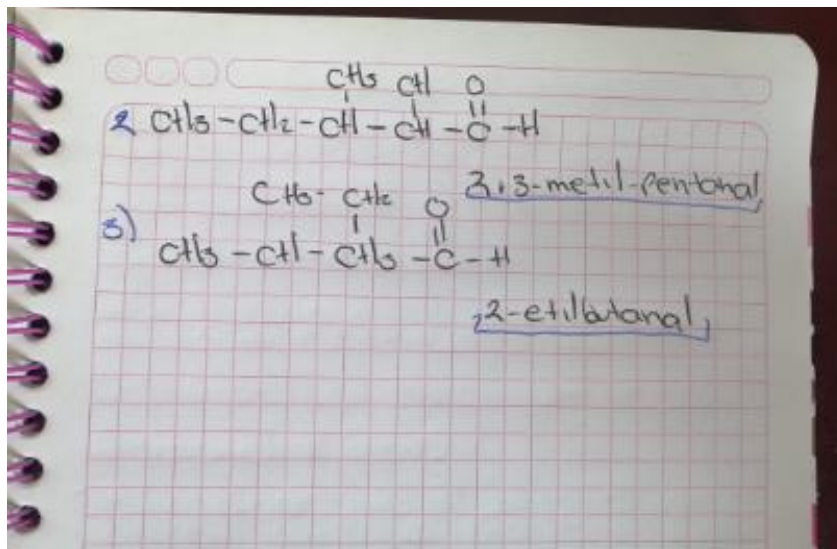 CH3 CH O
2 CH3-CH2-CH-CH-C-H
2,3-metil-pentanal
CH3- CH2 O
3) CH3-CH-CH3-C-H
2-etilbutanal